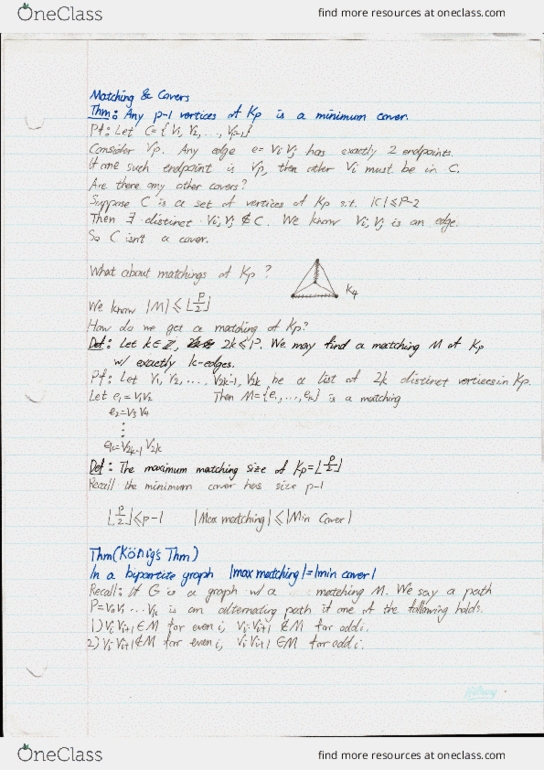 OneClass
find more resources at oneclass.com
Matching & Covers
Thm: Any p-1 vertices of Kp is a minimum cover.
Pf: Let C={V1, V2, ..., Vp-1}
Consider Vp. Any edge e=ViVj has exactly 2 endpoints.
If one such endpoint is Vp, then other Vi must be in C.
Are there any other covers?
Suppose C is a set of vertices of Kp s.t. |C|≤P-2
Then ∃ distinct Vi, Vj ∉ C. We know Vi, Vj is an edge.
So C isn't a cover.
What about matchings of Kp?
K4
We know |M| ≤ ⌊p/2⌋
How do we get a matching of Kp?
Def: Let k∈Z, 2k≤P. We may find a matching M of Kp
w/ exactly k-edges.
Pf: Let V1, V2, ..., V2k-1, V2k be a list of 2k distinct vertices in Kp.
Let e1=V1V2 Then M={e1,...,ek} is a matching
e2=V3V4
⋮
ek=V2k-1V2k
Def: The maximum matching size of Kp=⌊p/2⌋
Recall the minimum cover has size p-1
⌊p/2⌋≤p-1 |Max matching|≤|Min Cover|
Thm(König's Thm)
In a bipartite graph |max matching|=|min cover|
Recall: If G is a graph w/ a matching M. We say a path
P=V0V1...Vk is an alternating path if one of the following holds.
1) ViVi+1∈M for even i, ViVi+1∉M for odd i.
2) ViVi+1∉M for even i, ViVi+1∈M for odd i.
Hilroy
OneClass
find more resources at oneclass.com